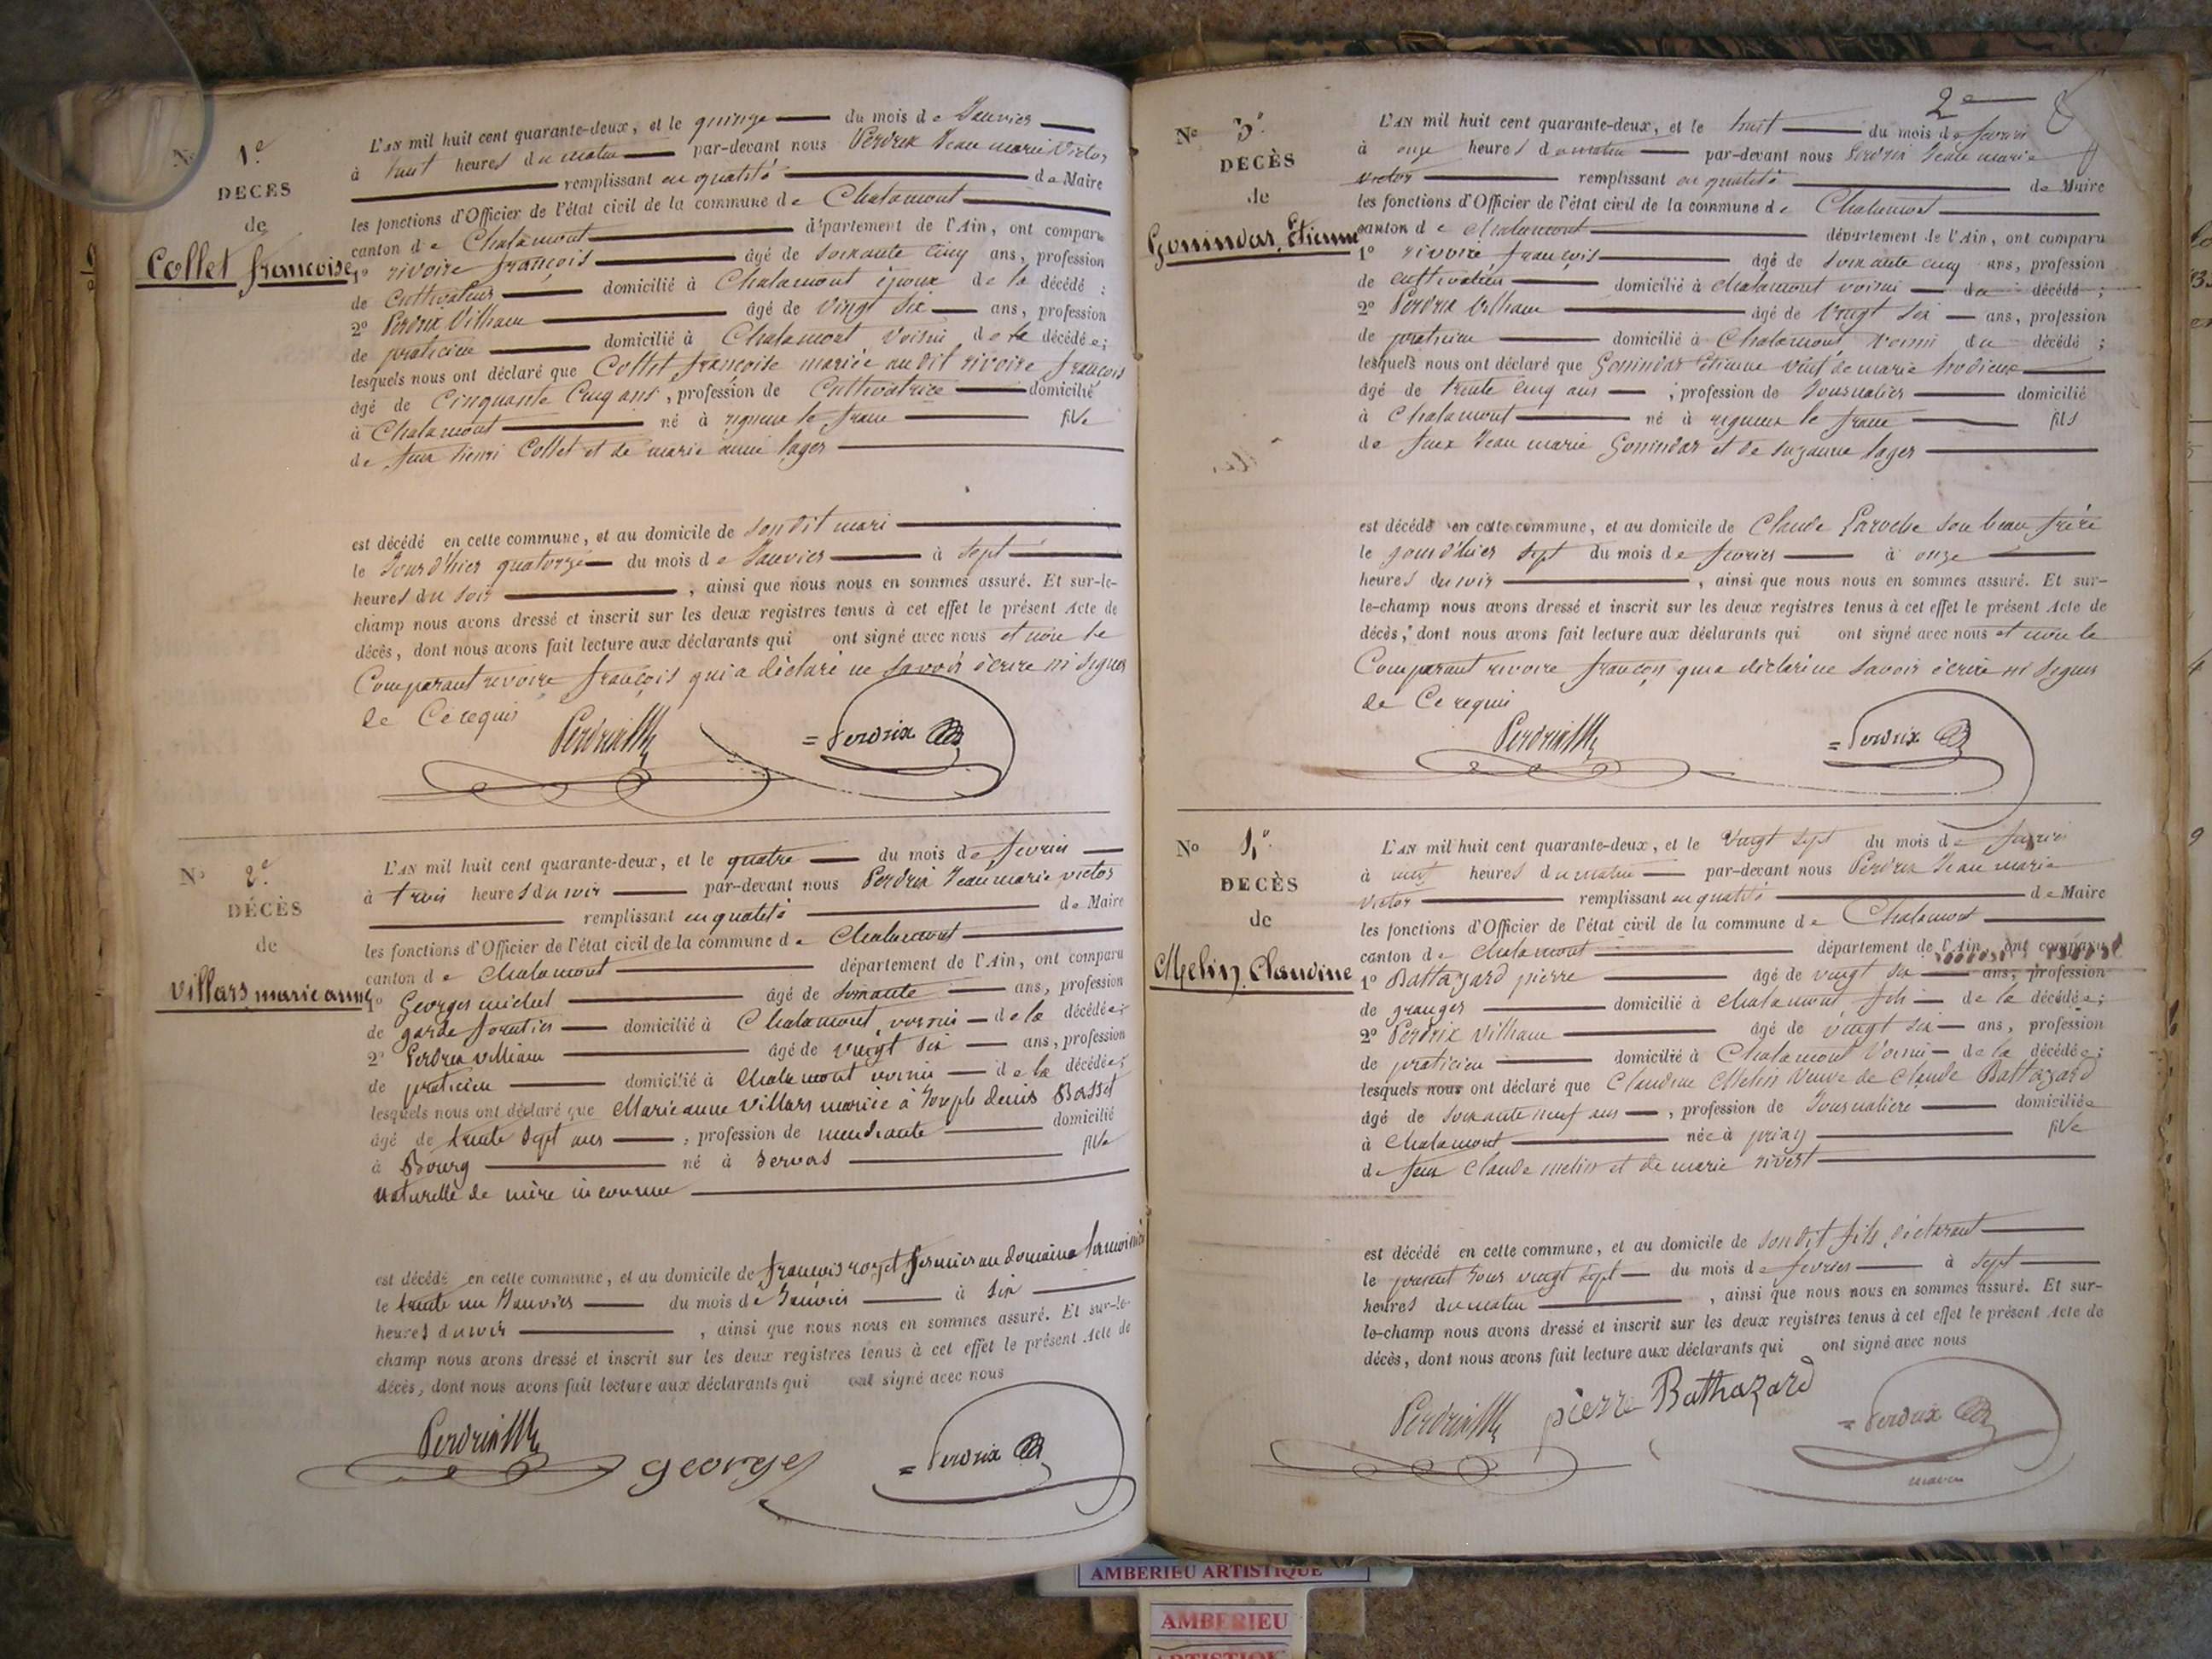 N° 1.e
DECES
de
Collet françoise
L'AN mil huit cent quarante-deux, et le quinze du mois de Janvier
à huit heures du matin par-devant nous Perdrix Jean marie Victor
remplissant en qualité de Maire
les fonctions d'Officier de l'état civil de la commune de Chalamont
canton de Chalamont département de l'Ain, ont comparu
1° rivoire françois âgé de soixante cinq ans, profession
de Cultivateur domicilié à Chalamont époux de la décédé ;
2° Perdrix Villiam âgé de vingt six ans, profession
de praticien domicilié à Chalamont voisin de la décédée;
lesquels nous ont déclaré que Collet françoise mariée au dit rivoire françois
âgé de Cinquante Cinq ans, profession de Cultivatrice domicilié
à Chalamont né à rigneux le franc fille
de feux henri Collet et de marie anne lager
est décédé en cette commune, et au domicile de son dit mari
le Jour d'hier quatorze du mois de Janvier à sept
heures du soir , ainsi que nous nous en sommes assuré. Et sur-le-
champ nous avons dressé et inscrit sur les deux registres tenus à cet effet le présent Acte de
décès, dont nous avons fait lecture aux déclarants qui ont signé avec nous et non le
Comparant rivoire françois qui a déclaré ne savoir écrire ni signer
de Ce requis
Perdrix = Perdrix
N° 2.e
DÉCÈS
de
Villars marie anne
L'AN mil huit cent quarante-deux, et le quatre du mois de février
à trois heures du soir par-devant nous Perdrix Jean marie victor
remplissant en qualité de Maire
les fonctions d'Officier de l'état civil de la commune de Chalamont
canton de Chalamont département de l'Ain, ont comparu
1° Georges michel âgé de soixante ans, profession
de garde forestier domicilié à Chalamont, voisin de la décédée;
2° Perdrix Villiam âgé de vingt six ans, profession
de praticien domicilié à Chalamont voisin de la décédée;
lesquels nous ont déclaré que Marie anne Villars mariée à Joseph denis Basset
âgé de trente sept ans , profession de mendiante domicilié
à Bourg né à Servas fille
naturelle de mère inconnue
est décédé en cette commune, et au domicile de françois royet fermier au domaine
le trente un Janvier du mois de Janvier à six
heures du soir , ainsi que nous nous en sommes assuré. Et sur-le-
champ nous avons dressé et inscrit sur les deux registres tenus à cet effet le présent Acte de
décès, dont nous avons fait lecture aux déclarants qui ont signé avec nous
Perdrix georges = Perdrix
2e
N° 3.e
DECÈS
de
Gonindar Etienne
L'AN mil huit cent quarante-deux, et le huit du mois de fevrier
à onze heures du matin par-devant nous Perdrix Jean marie
victor remplissant en qualité de Maire
les fonctions d'Officier de l'état civil de la commune de Chalamont
canton de Chalamont département de l'Ain, ont comparu
1° rivoire françois âgé de soixante cinq ans, profession
de cultivateur domicilié à Chalamont voisin du décédé ;
2° Perdrix Villiam âgé de vingt six ans, profession
de praticien domicilié à Chalamont voisin du décédé ;
lesquels nous ont déclaré que Gonindar Etienne veuf de marie
âgé de trente cinq ans ; profession de Journalier domicilié
à Chalamont né à rigneux le franc fils
de feux Jean marie Gonindar et de suzanne lager
est décédé en cette commune, et au domicile de Claude Laroche son beau frère
le jour d'hier sept du mois de fevrier à onze
heures du soir , ainsi que nous nous en sommes assuré. Et sur-
le-champ nous avons dressé et inscrit sur les deux registres tenus à cet effet le présent Acte de
décès, dont nous avons fait lecture aux déclarants qui ont signé avec nous et non le
Comparant rivoire françois qui a déclaré ne savoir écrire ni signer
de Ce requis
Perdrix = Perdrix
No
DECÈS
de
Melin Claudine
L'AN mil huit cent quarante-deux, et le vingt sept du mois de fevrier
à neuf heures du matin par-devant nous Perdrix Jean marie
Victor remplissant en qualité de Maire
les fonctions d'Officier de l'état civil de la commune de Chalamont
canton de Chalamont département de l'Ain, ont comparu
1° Battazard pierre âgé de vingt six ans, profession
de granger domicilié à Chalamont, fils de la décédée;
2° Perdrix Villiam âgé de vingt six ans, profession
de praticien domicilié à Chalamont Voisin de la décédée;
lesquels nous ont déclaré que Claudine Melin Veuve de Claude Battazard
âgé de soixante neuf ans , profession de Journaliere domiciliée
à Chalamont née à priay fille
de feux Claude melin et de marie rivert
est décédé en cette commune, et au domicile de son dit fils, déclarant
le present Jour vingt sept du mois de fevrier à sept
heures du matin , ainsi que nous nous en sommes assuré. Et sur-
le-champ nous avons dressé et inscrit sur les deux registres tenus à cet effet le présent Acte de
décès, dont nous avons fait lecture aux déclarants qui ont signé avec nous
Perdrix pierre Bathazard = Perdrix
AMBERIEU ARTISTIQUE
AMBERIEU
ARTISTIQUE